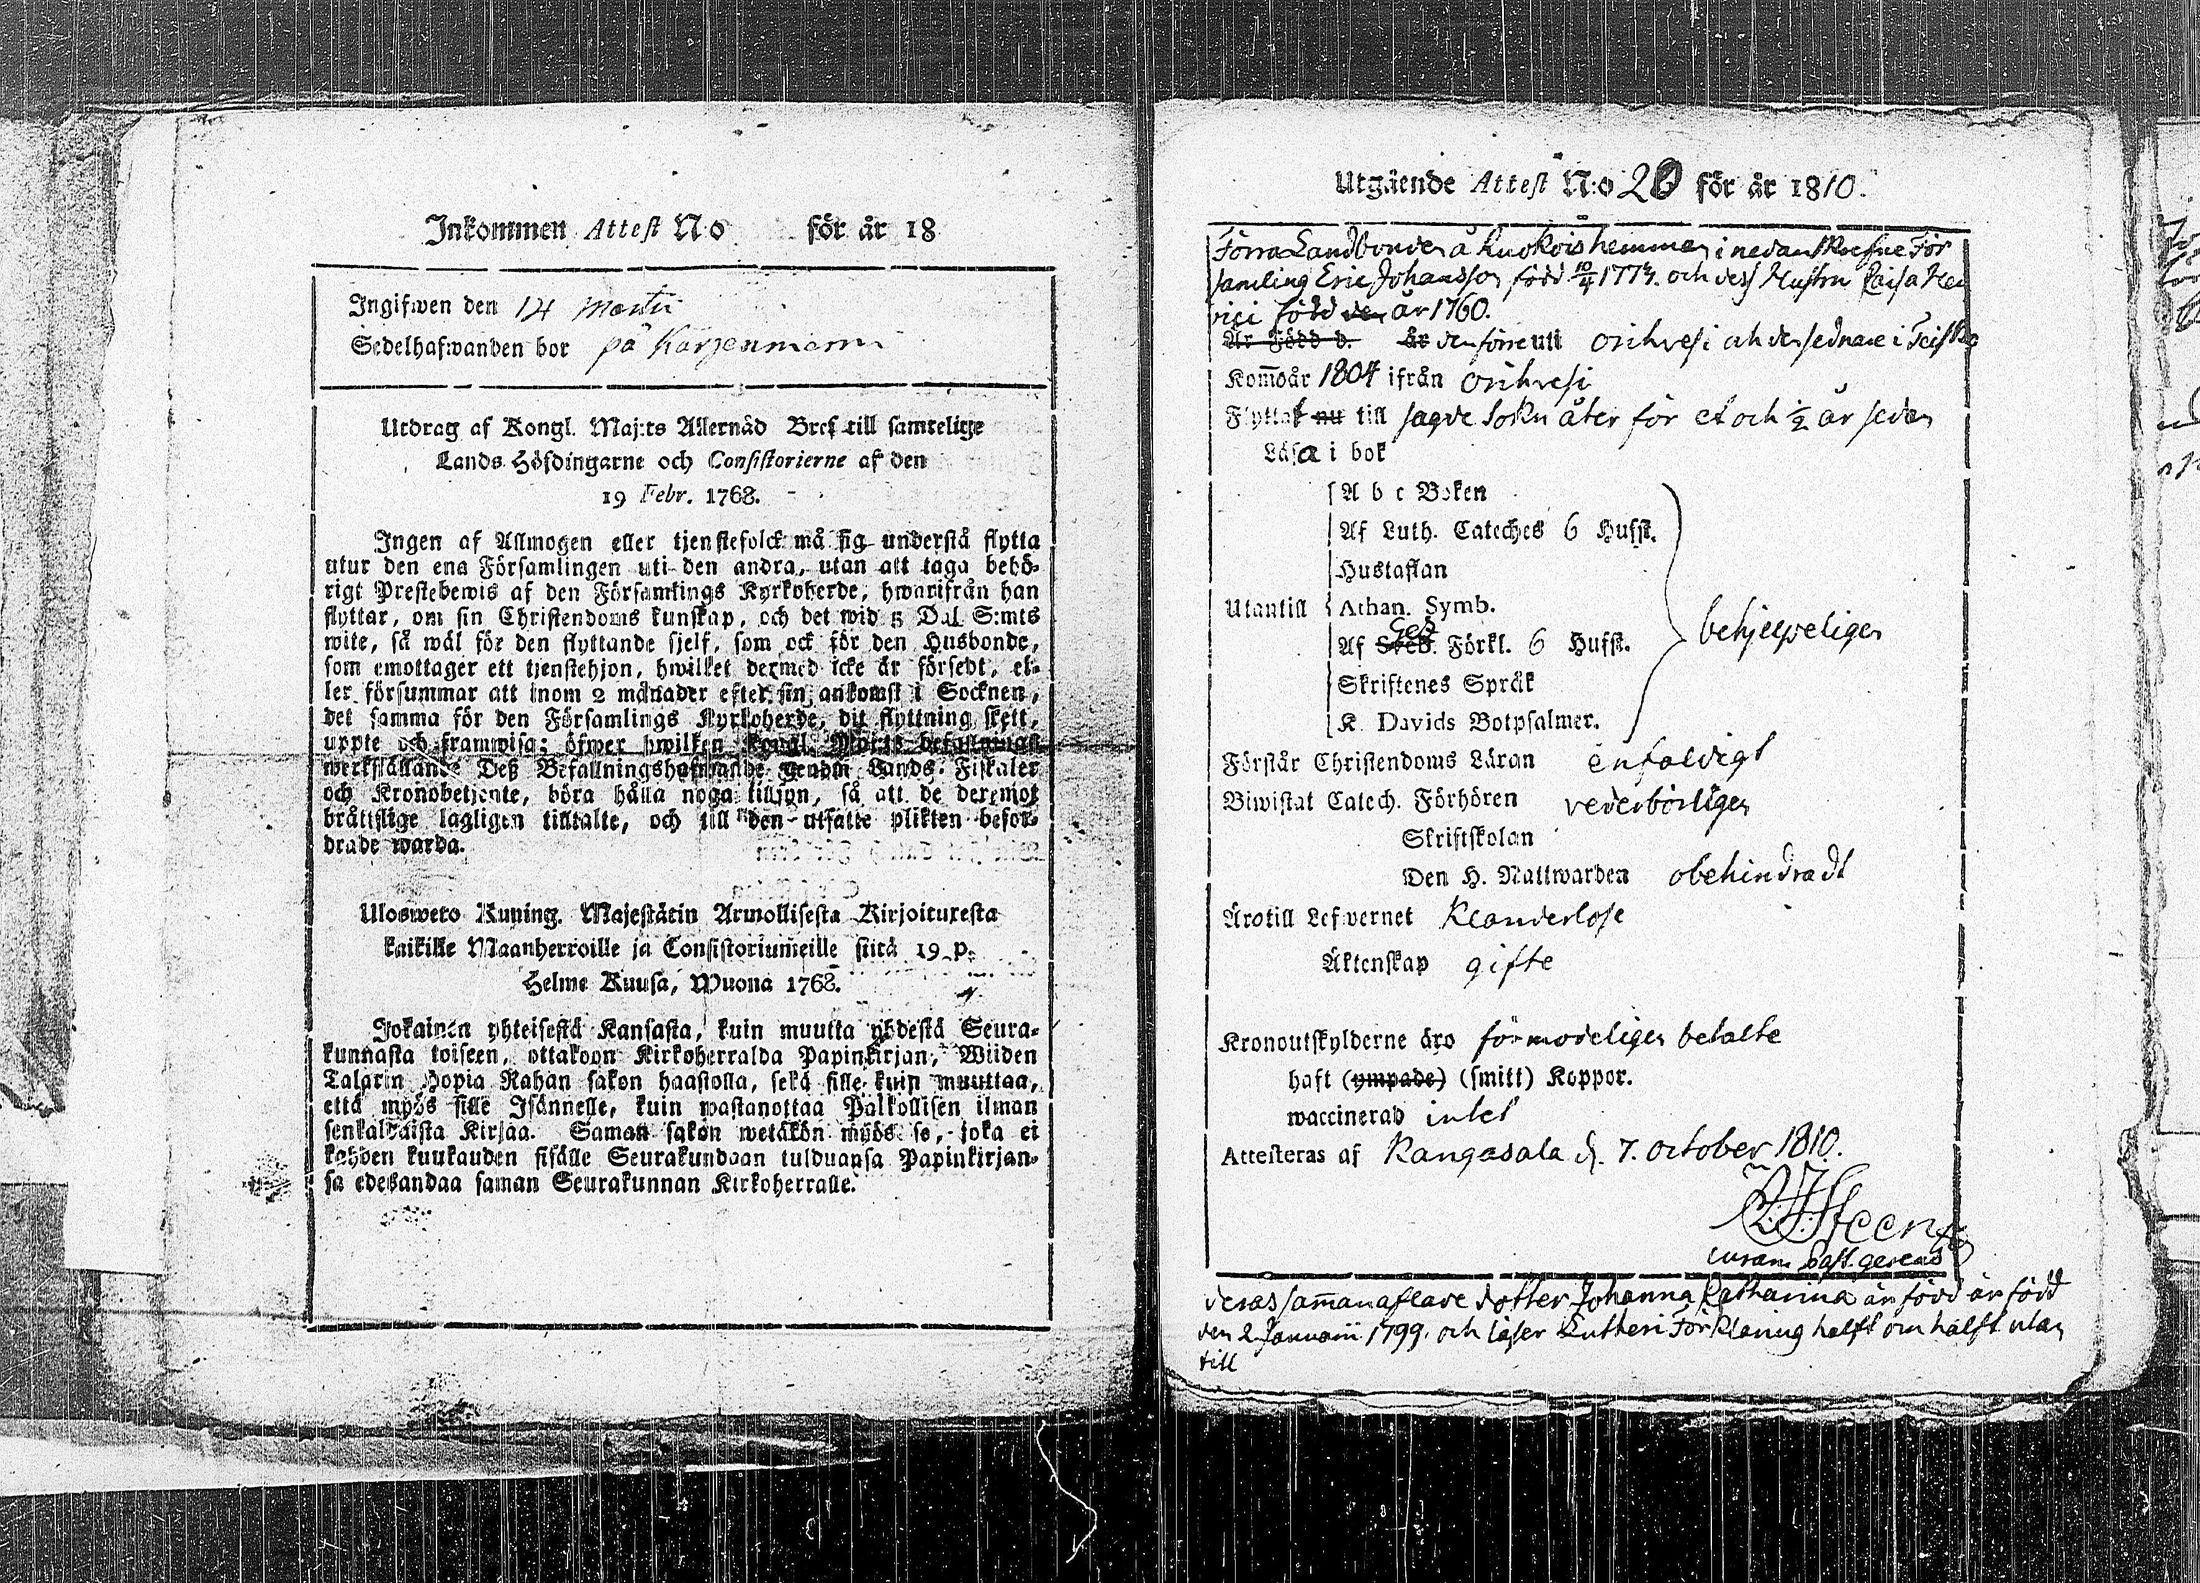 Inkommen Attest N:o för år 18
Ingifwen den 14 Martii
Sedelhafwanden bor på
Utdrag af Kongl. Maj:ts Allernåd Bref till samtelige
Lands Höfdingarne och Consistorierne af den
19 Febr. 1768.
Ingen af Allmogen eller tjenstefolck må sig understå flytta
utur den ena Församlingen uti den andra, utan att taga behö-
rigt Prestebewis af den Församlings Kyrkoherde, hwarifrån han
flyttar, om sin Christendoms kunskap, och det wid 5 Dal S:mts
wite, så wäl för den flyttande sjelf, som ock för den Husbonde,
som emottager ett tjenstehjon, hwilket dermed icke är försedt, el-
ler försummar att inom 2 månader efter sin ankomst i Socknen,
det samma för den Församlings Kyrkoherde, dit flyttning skett,
uppte och framwisa; öfwer hwilken Kongl. Maj:ts befallnings
werkställande Deß Befallningshafwande genom Lands-Fiskaler
och Kronobetjente, böra hålla noga tillsyn, så att de deremot
bråttslige lagligen tilltalte, och till den utsatte plikten befor-
drade warda.
Ulosweto Kuning. Majestätin Armollisesta Kirjoituxesta
kaikille Maanherroille ja Consistoriumeille siitä 19 p.
Helme Kuusa, Wuona 1768.
Jokainen yhteisestä Kansasta, kuin muutta yhdestä Seura-
kunnasta toiseen, ottakoon Kirkoherralda Papinkirjan, Wiiden
Talarin Hopia Rahan sakon haastolla, sekä sille kuin muuttaa,
että myös sille Isännelle, kuin wastanottaa Palkollisen ilman
senkaltaista Kirjaa. Saman sakon wetäkön myös se, joka ei
kahden kuukauden sisälle Seurakundaan tulduansa Papinkirjan-
sa edesandaa saman Seurakunnan Kirkoherralle.
Utgående Attest N:o 20 för år 1810.
Förra Landbonden å hemman i nedanskrefne För
samling Eric Johansson född 10/4 177 och dess Hustru Caisa Hen
rici född den år 1760.
Är Född d. år den förre uti Orihvesi och den sednare i Teisko
Kom̄o år 1804 ifrån Orihvesi
Flyttat nu till sagde Sokn åter för et och 1/2 år sedan
Läsa i bok
A b c Boken
Af Luth. Cateches 6 Hufst.
Hustaflan
Utantill Athan. Symb.
Af Sveb. Förkl. 6 Hufst.
Skriftenes Språk
K. Davids Botpsalmer.
behjelpeligen
Förstår Christendoms Läran enfaldigt
Biwistat Catech. Förhören vederbörligen
Skriftskolan
Den H. Nattwarden obehindradt
Äro till Lefwernet Klanderlose
Äktenskap gifte
Kronoutskylderne äro förmodeligen betalte
haft (ympade) (smitt) Koppor.
waccinerad intet
Attesteras af Kangasala d. 7. October 1810.
curam Past. gerens
deras sam̄anaflade dotter Johanna Katharina är född är född
den 2 Januarii 1799. och läser Lutheri Förklaring halft om halft utan
till